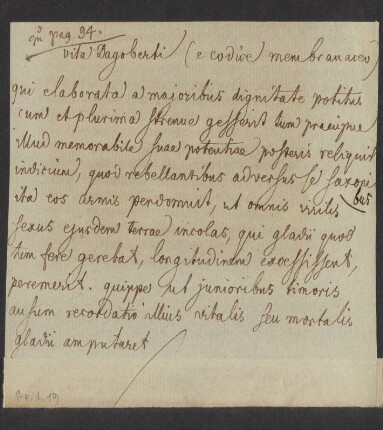 pag. 94.
Vita Dagoberti (e codice membranaceo)
qui elaborata a majoribus dignitate potitus
cum et plurima strenue gesserit tum praecipue
illud memorabile suae potentiae posteris reliquit
indicium, quod rebellantibus adversus se saxoni
bus
ita eos armis perdomuit, ut omnis virilis
sexus ejusdem terrae incolas, qui gladii quod
tum fere gerebat, longitudinem excessissent,
peremerit. quippe ut junioribus timoris
ausum recordatio illius vitalis seu mortalis
gladii amputaret